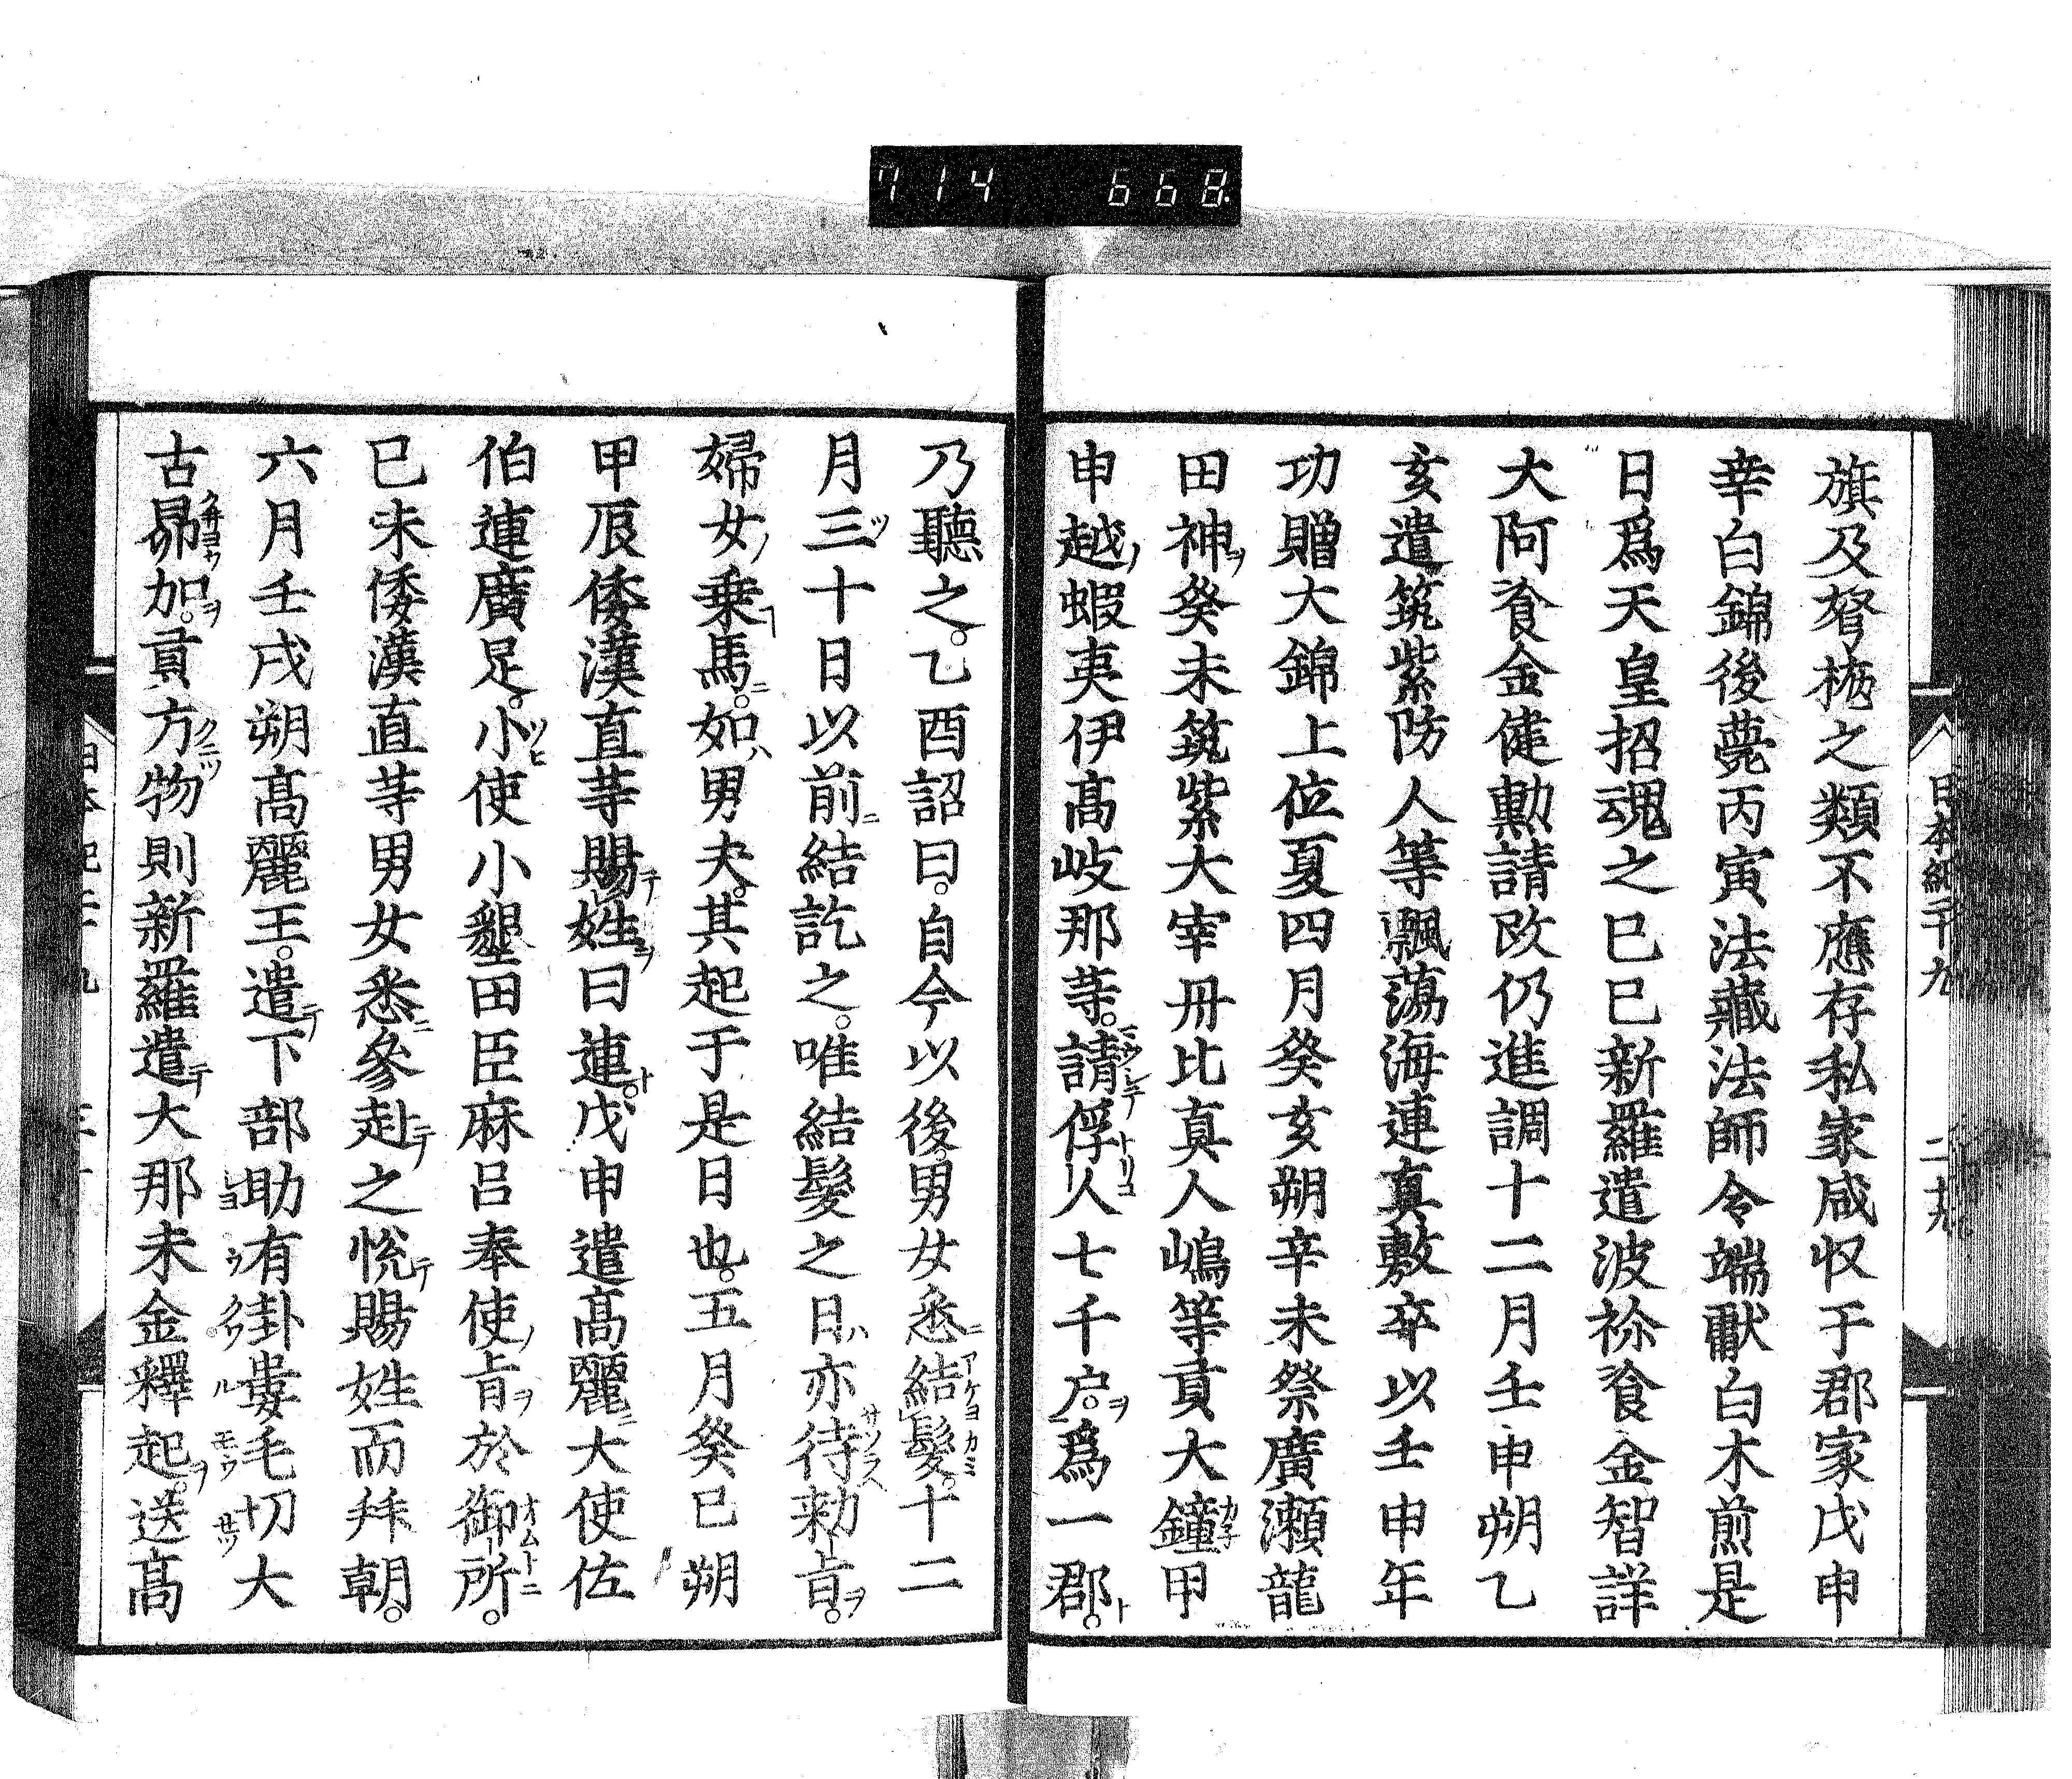 714 668.
日本紀二十九
旗及弩抛之類不應存私家咸収于郡家戊申
幸白錦後菀丙寅法藏法師令端獻白木煎是
日爲天皇招魂之已巳新羅遣波袮飡金智詳
大阿飡金健勳請政仍進調十二月壬申朔乙
亥遣筑紫防人等飄蕩海連真敷卒以壬申年
功贈大錦上位夏四月癸亥朔辛未祭廣瀬龍
田神癸未筑紫大宰丹比真人嶋等貢大鐘甲
申越蝦夷伊高岐那䒭請俘人七千户爲一郡
乃聽之乙酉詔曰自今以後男女悉結髮十二
月三十日以前結訖之唯結髮之日亦待勅㫖
婦女乗馬如男夫其起于是日也五月癸巳朔
甲辰倭漢直䒭賜姓曰連戊申遣髙麗大使佐
伯連廣足小使小墾田臣麻呂奉使㫖於御所
已未倭漢直䒭男女悉參赴之恱賜姓而拜朝
六月壬戌朔髙麗王遣下部助有卦婁毛切大
古昴加貢方物則新羅遣大那末金釋起送髙